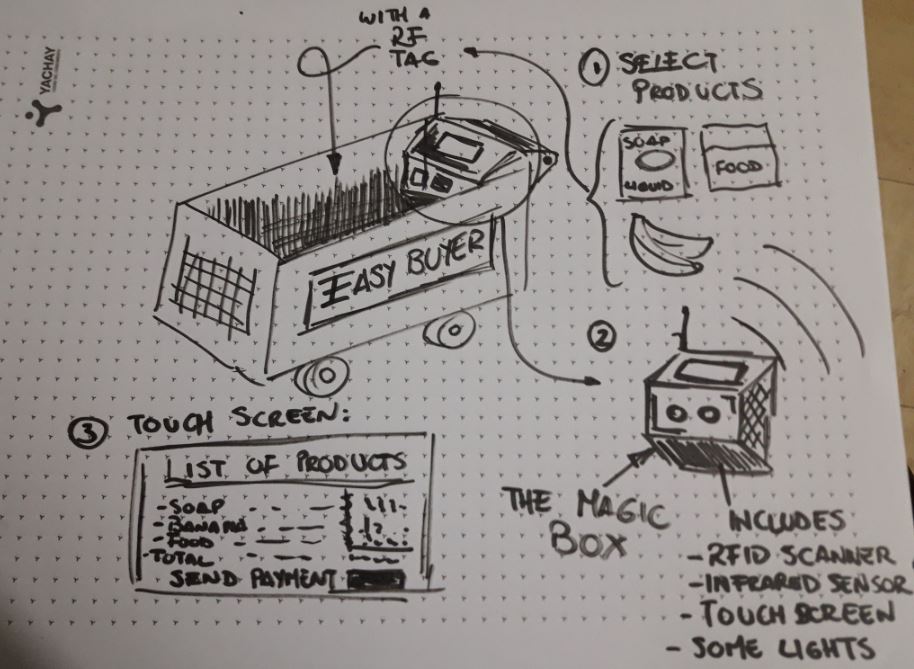 YACHAY
WITH A
RF
TAG
1 SELECT
PRODUCTS
SOAP
LIQUID
FOOD
EASY BUYER
2
THE MAGIC
BOX
INCLUDES
- RFID SCANNER
- INFRARED SENSOR
- TOUCH SCREEN
- SOME LIGHTS
3 TOUCH SCREEN:
LIST OF PRODUCTS
- SOAP
- BANANA
- FOOD
- TOTAL
SEND PAYMENT